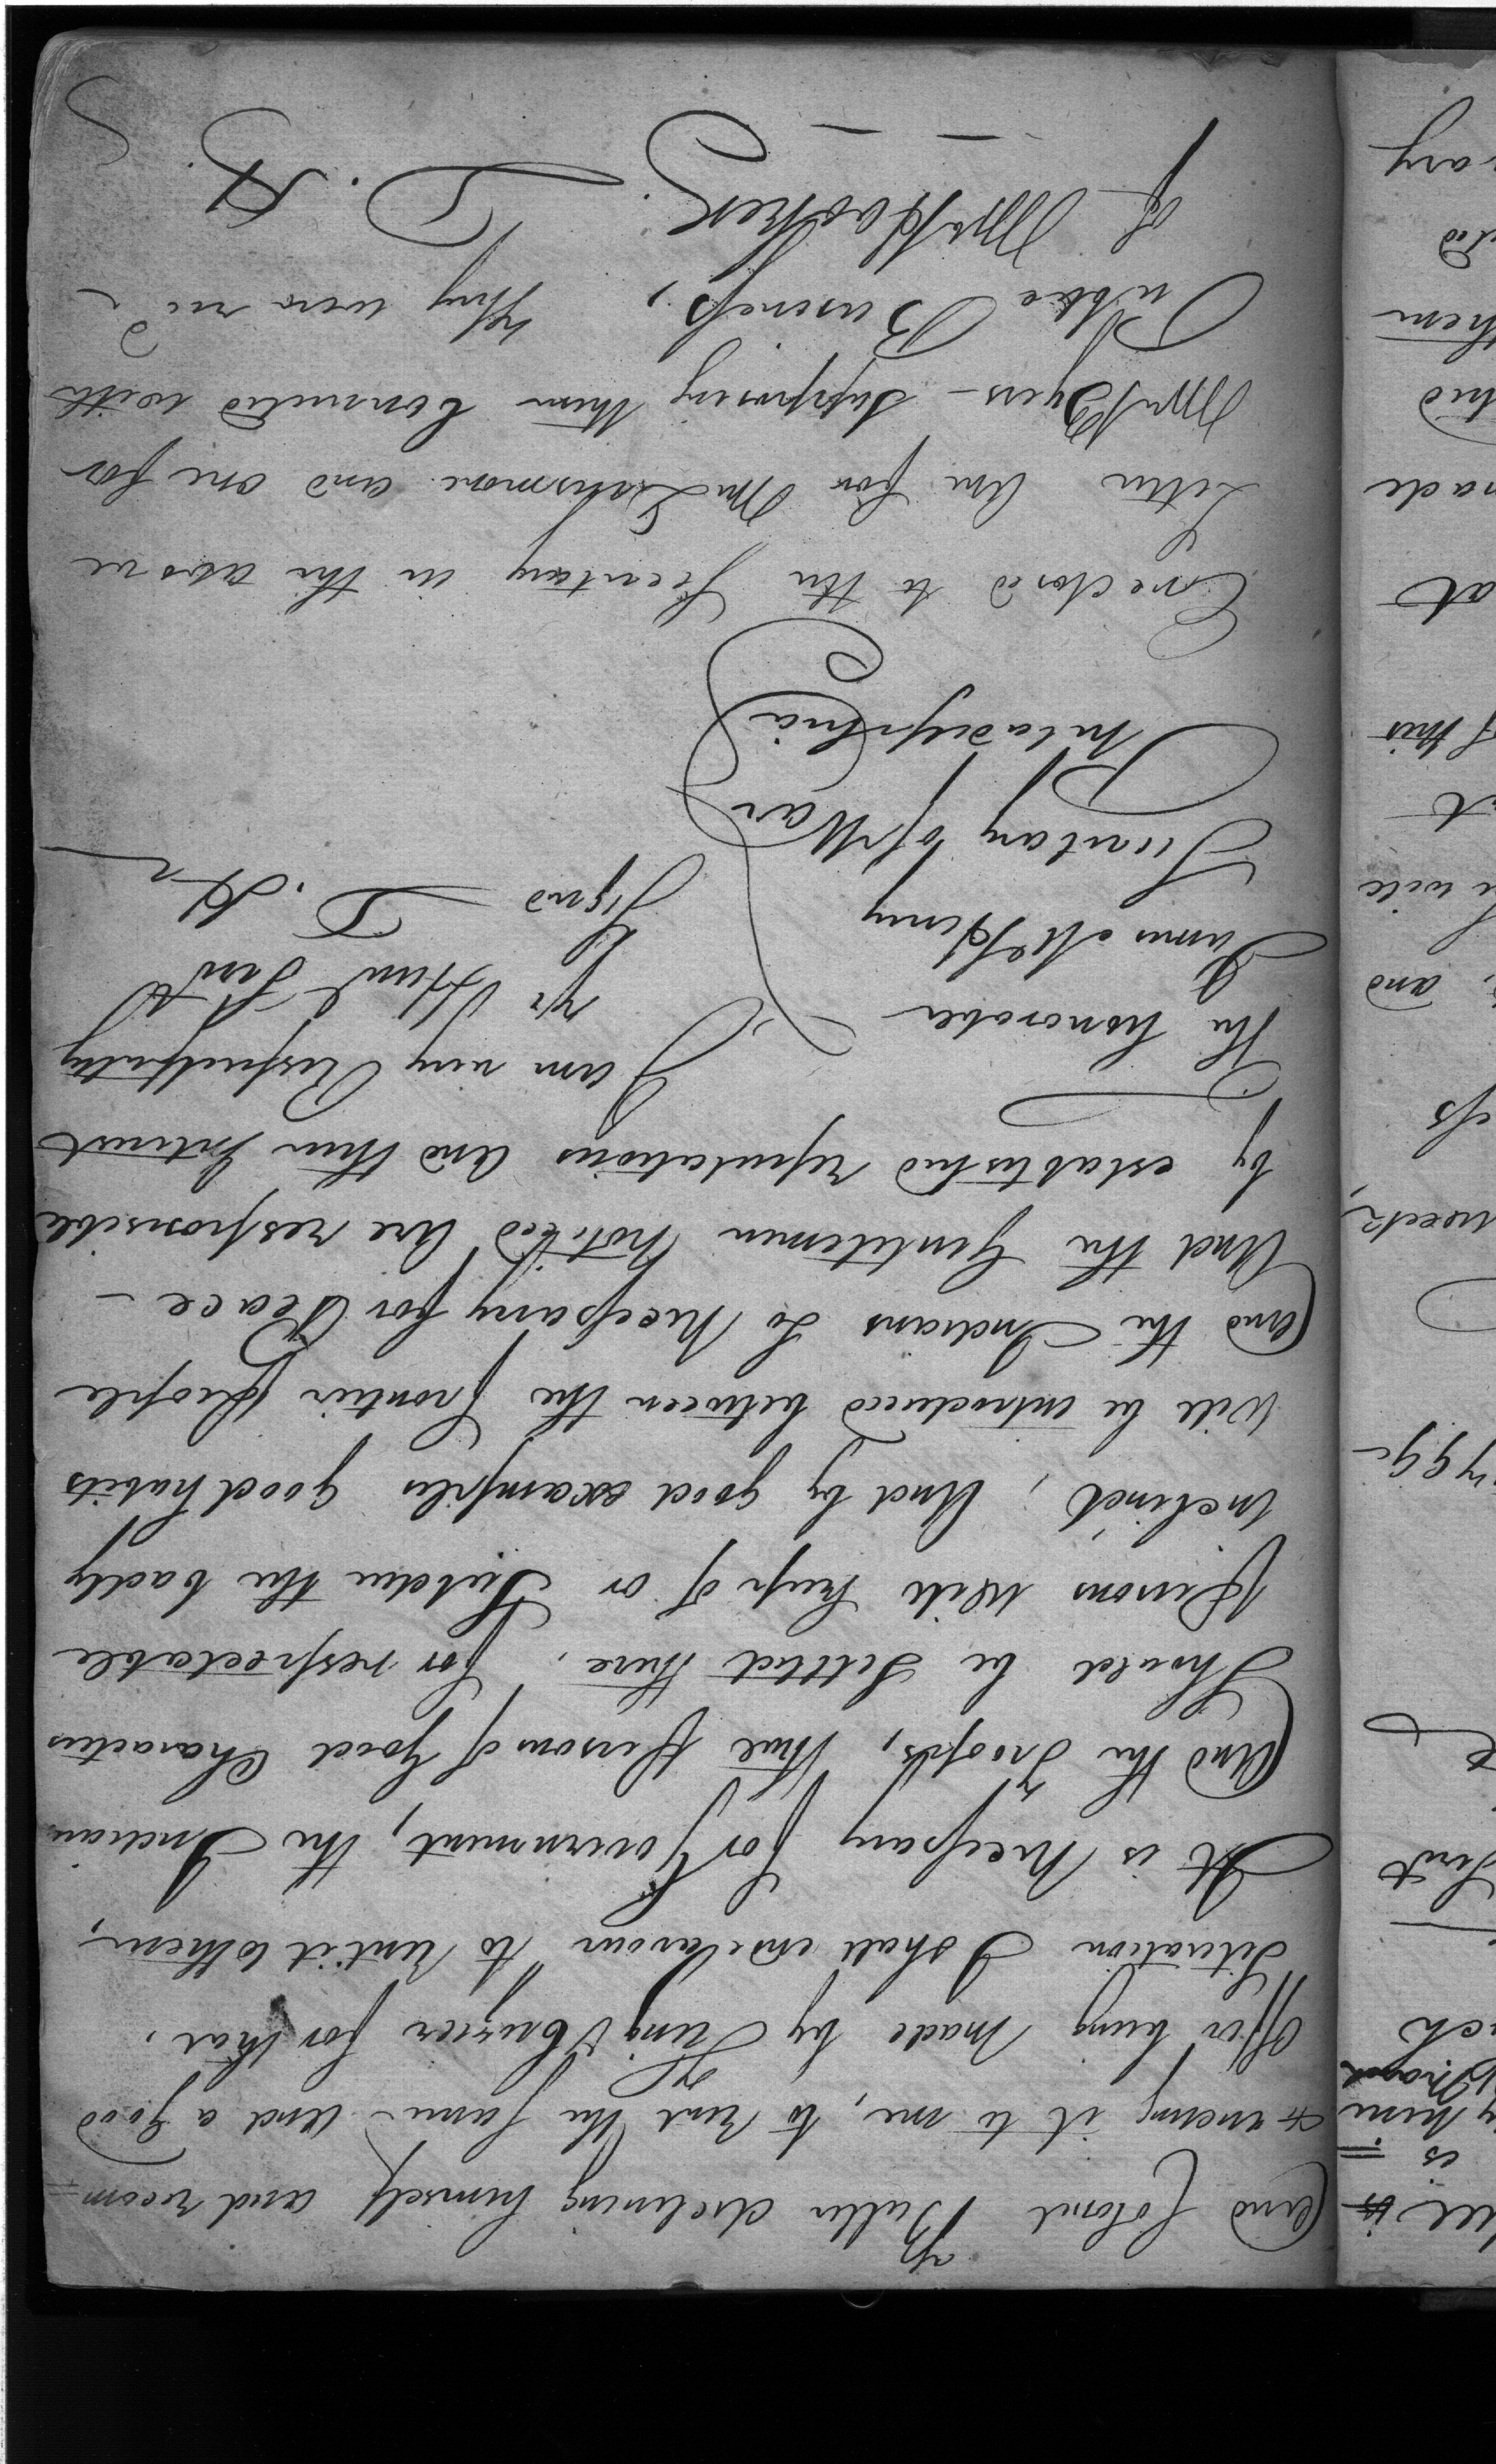 and Colonel Butler declining himself and recom=
=mending it to me, to rent the same - And a good
offer being made by King & Crozier for that.
Situation I shall endeavour to rent it to them,
It is Necessary for Government, the Indians
And the Troops, that persons of Good Characters
Should be Settled there. for respectable
Persons Will keep of or Subdue the badly
inclined, And by good examples good habits
Will be introduced between the frontier People
and the Indians So Necessary for Peace -
And the Gentlemen Noticed Are responsible
by established reputations And their Interest
I am very Respectfully
yr Huml Servt
Signd D. H
The honorable
James McHenry
Secretary of War
Philadelphia
Enclosed to the Secretary in the above
Letter One for Mr Lishmore and one for
Mr Byers - Supposing them Connected with
Public Business, they were recd
of Mr Hooker. D. H.